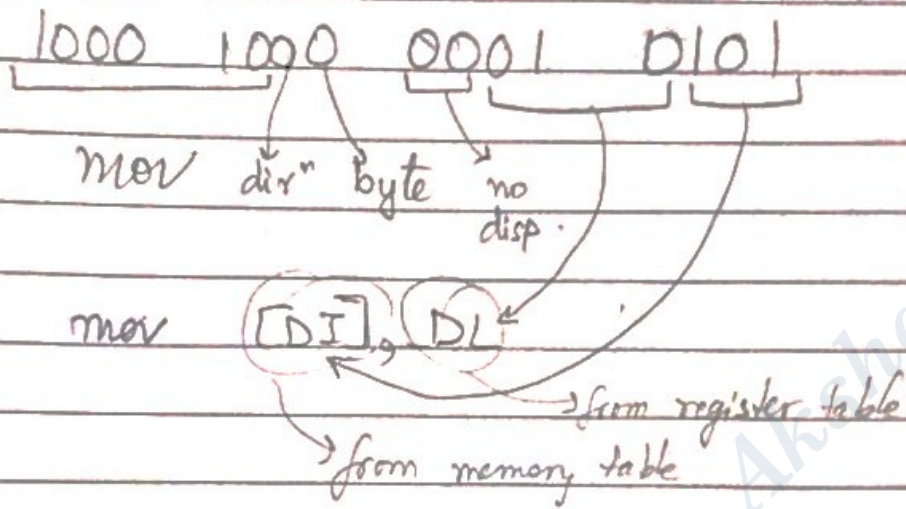 1000 1000 0001 0101
mov dirⁿ byte no
disp.
mov [DI], DL
from register table
from memory table
Aksh